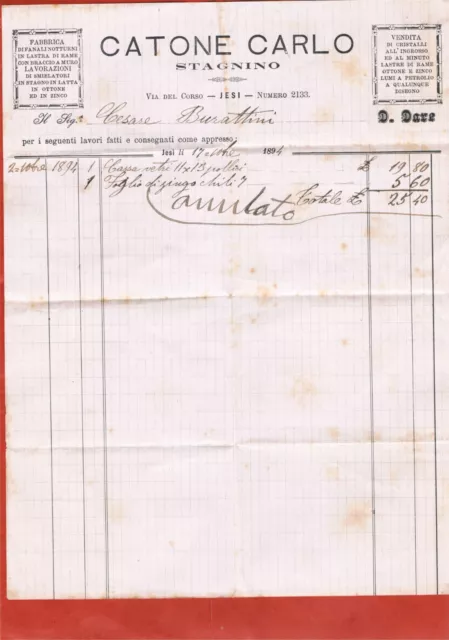 FABBRICA
DI FANALI NOTTURNI
IN LASTRA DI RAME
CON BRACCIO A MURO
LAVORAZIONI
DI SMIELATORI
IN STAGNO IN LATTA
IN OTTONE
ED IN ZINCO
CATONE CARLO
STAGNINO
VIA DEL CORSO — JESI — NUMERO 2133.
VENDITA
DI CRISTALLI
ALL'INGROSSO
ED AL MINUTO
LASTRE DI RAME
OTTONE E ZINCO
LUMI A PETROLIO
A QUALUNQUE
DISEGNO
Il Sig. Cesare Burattini
D. Dare
per i seguenti lavori fatti e consegnati come appresso:
Jesi li 17 1894
1894 1 Cassa vetri 11 x 13 £ 19 80
1 Foglio di zingo chili 9 5 60
Totale £ 25 40
annulato